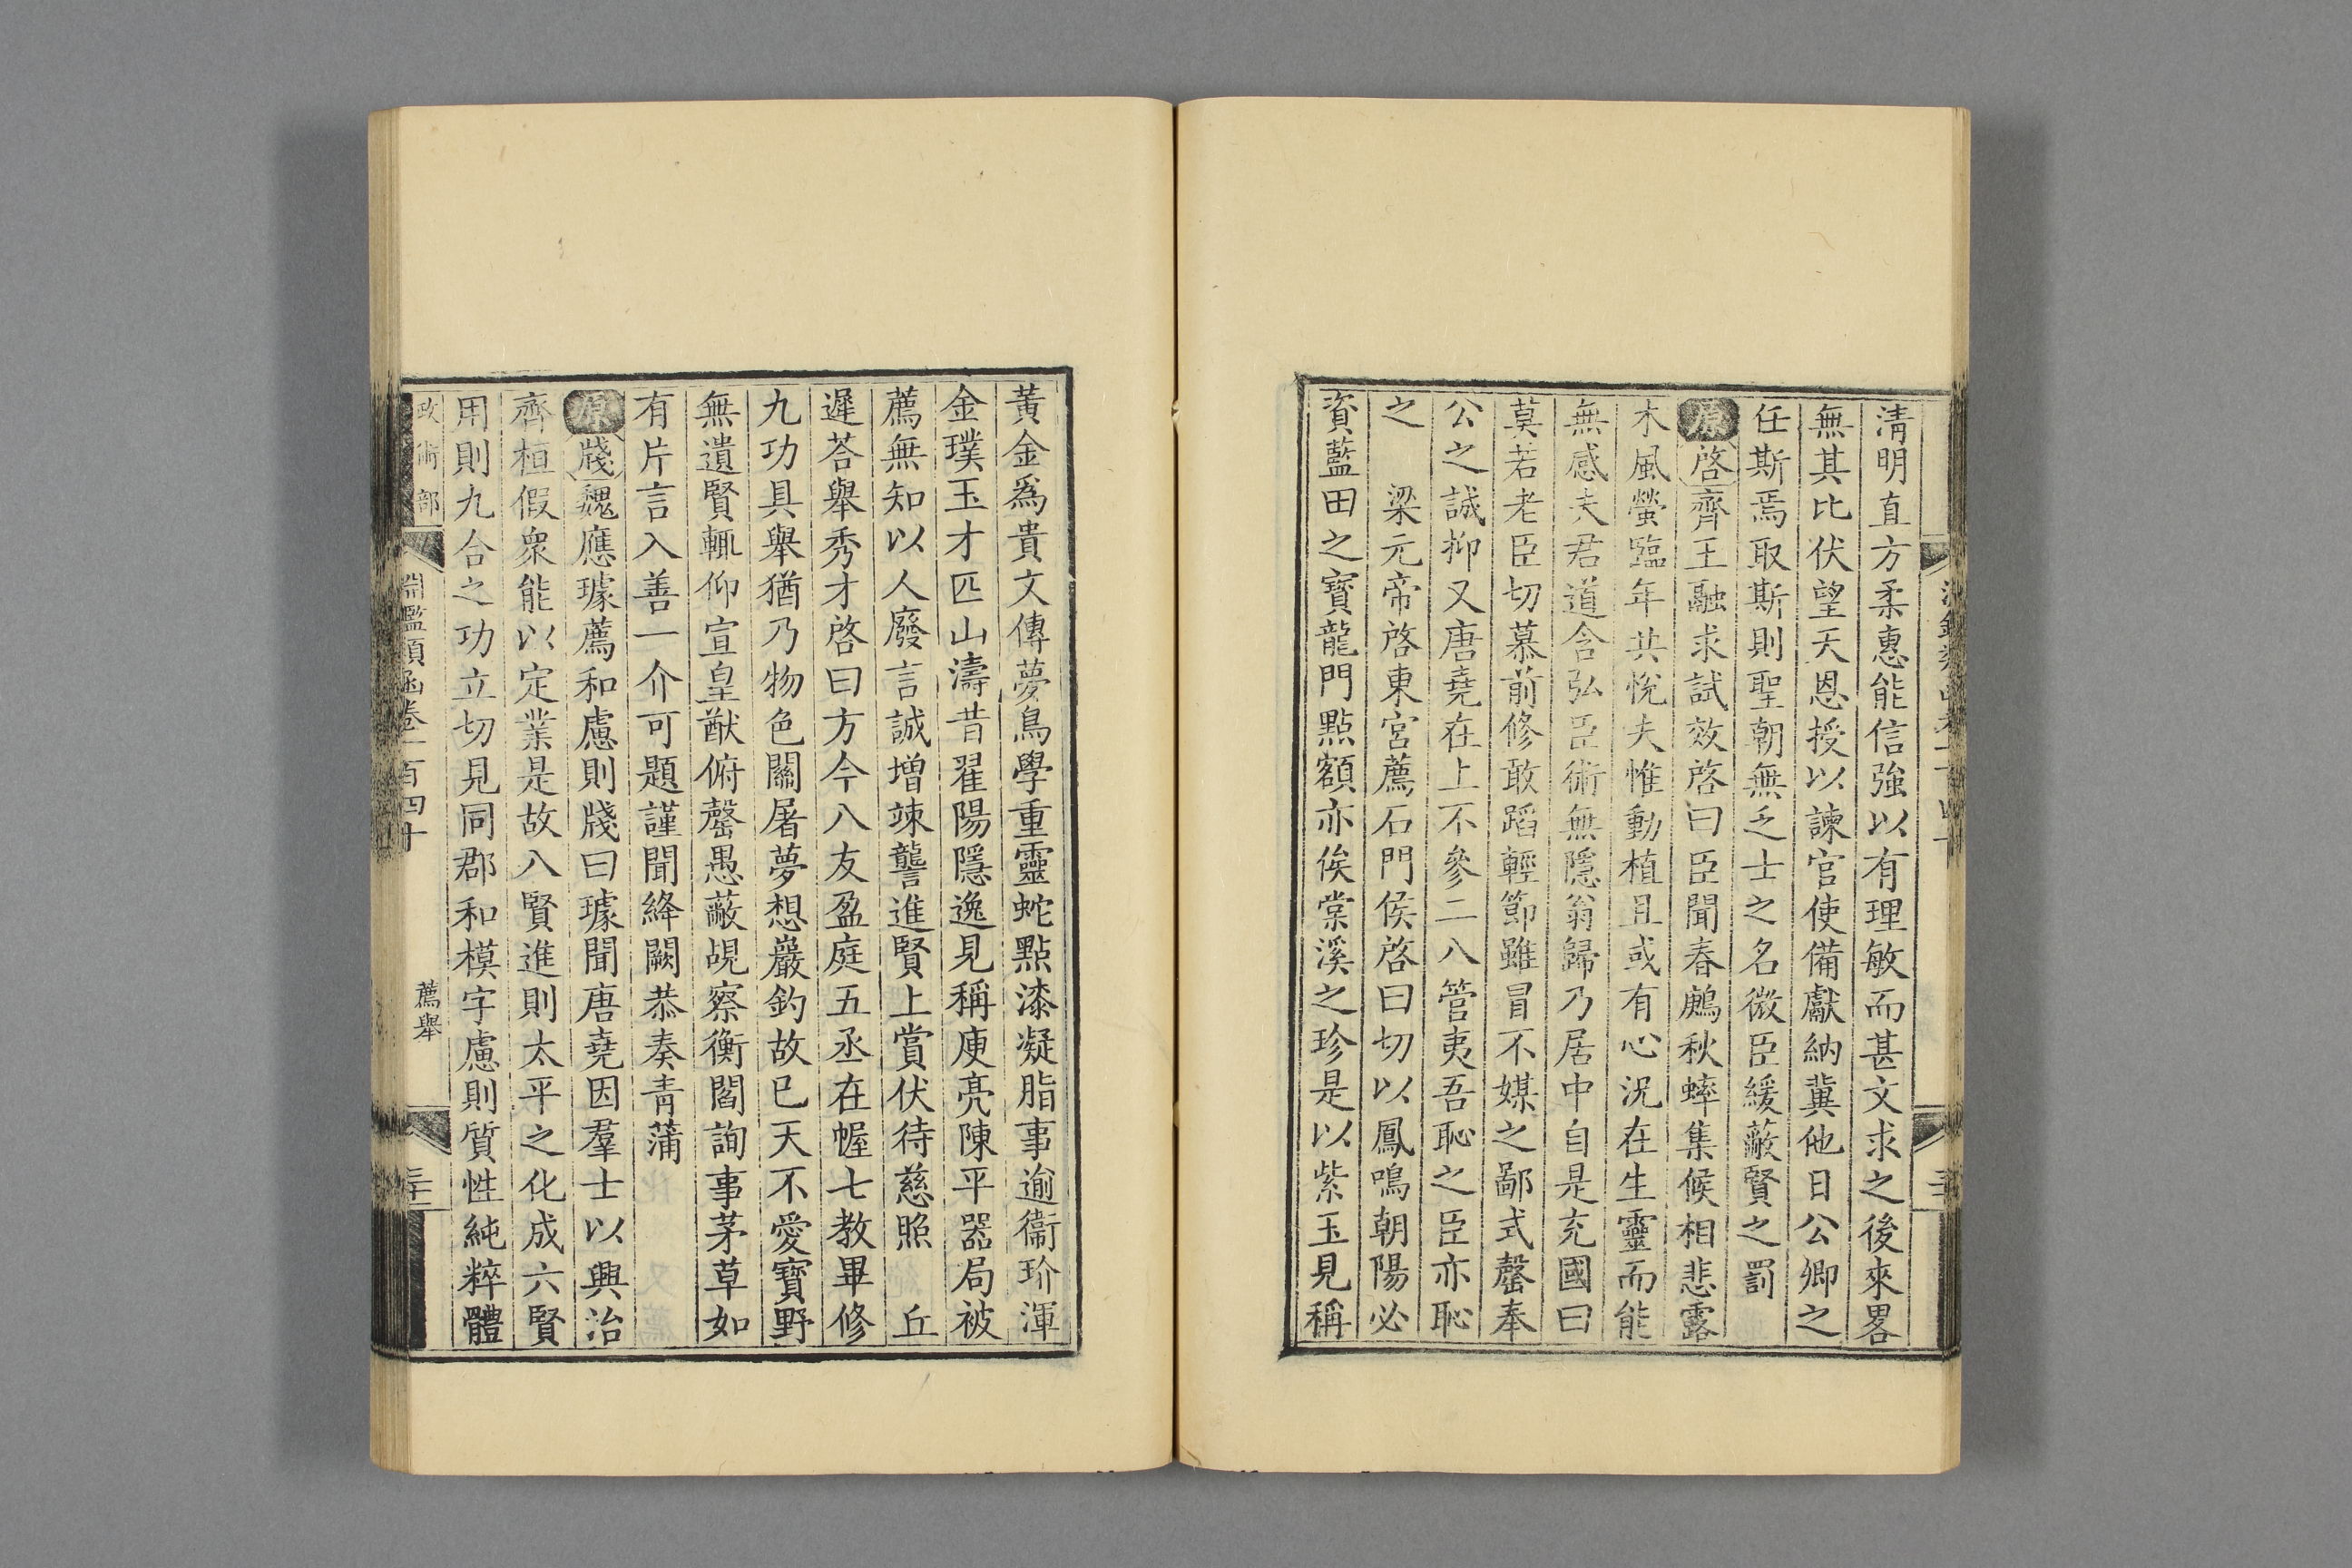 清明直方柔惠能信強以有理敏而甚文求之後來畧
無其比伏望天恩授以諫官使備獻納冀他日公卿之
任斯焉取斯則聖朝無乏士之名微臣緩蔽賢之罰
原啓齊王融求試效啓曰臣聞春鶊秋蟀集候相悲露
木風螢臨年共悅夫惟動植且或有心況在生靈而能
無感夫君道含弘臣術無隱翁歸乃居中自是充國曰
莫若老臣切慕前修敢蹈輕節雖冒不媒之鄙式罄奉
公之誠抑又唐堯在上不參二八管夷吾恥之臣亦恥
之　梁元帝啓東宮薦石門侯啓曰切以鳳鳴朝陽必
資藍田之寶龍門點額亦俟棠溪之珍是以紫玉見稱
黃金爲貴文傳夢鳥學重靈蛇點漆凝脂事逾衞玠渾
金璞玉才匹山濤昔翟陽隱逸見稱庾亮陳平器局被
薦無知以人廢言誠增竦讋進賢上賞伏待慈照　丘
遲荅舉秀才啓曰方今八友盈庭五丞在幄七教畢修
九功具舉猶乃物色關屠夢想巖釣故已天不愛寶野
無遺賢輒仰宣皇猷俯罄愚蔽覘察衡閭詢事茅草如
有片言入善一介可題謹聞絳闕恭奏青蒲
原牋魏應璩薦和慮則牋曰璩聞唐堯因羣士以興治
齊桓假衆能以定業是故八賢進則太平之化成六賢
用則九合之功立切見同郡和模字慮則質性純粹體
政術部　淵鑑類函卷一百四十　薦舉　三十一